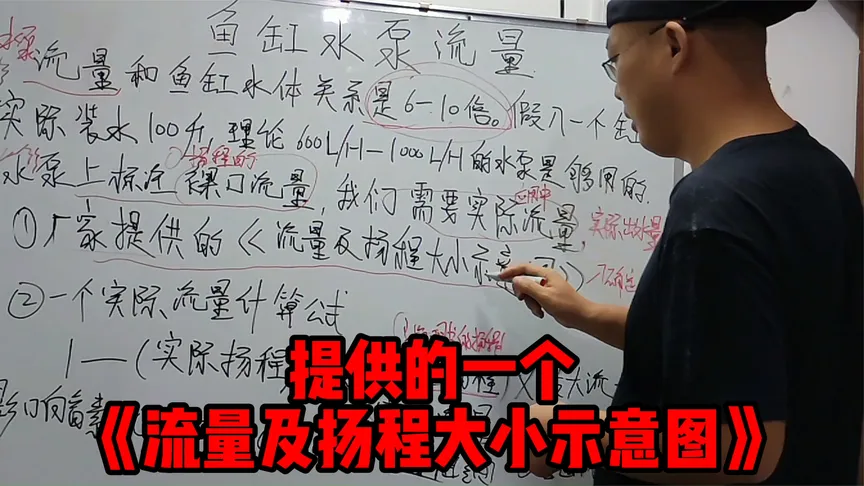 鱼缸水泵流量
水泵
流量和鱼缸水体关系是6-10倍。假入一个缸
实际装水100升,理论600L/H-1000L/H的水泵是够用的.
扬程为0
水泵上标注裸口流量,我们需要实际流量,
应用中
实际出水量
①厂家提供的《流量及扬程大小示意图》
②一个实际流量计算公式
1—(实际扬程
大流
影响因素
提供的一个
《流量及扬程大小示意图》